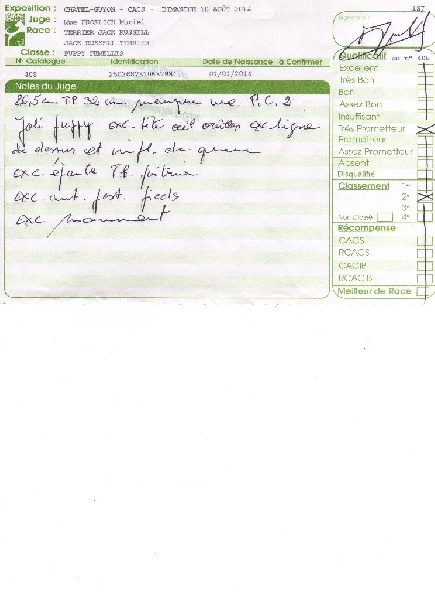 Exposition : CHATEL-GUYON - CACS - DIMANCHE 10 AOÛT 2014
187
Juge : Mme FROELICH Muriel
Race : TERRIER JACK RUSSELL
JACK RUSSELL TERRIER
Classe : PUPPY FEMELLES
N° Catalogue Identification Date de Naissance à Confirmer
408 01/01/2014
Notes du Juge
TB manque une P.C. 2
Joli puppy exc. tête œil oreilles exc ligne
de dessus et de queue
exc épaule TB poitrine
exc ant. post. pieds
exc mouvement
Signature :
Qualificatif du n° 408
Excellent
Très Bon
Bon
Assez Bon
Insuffisant
Très Prometteur
Prometteur
Assez Prometteur
Absent
Disqualifié
Classement 1°
2°
3°
Non Classé 4°
Récompense
CACS
RCACS
CACIB
RCACIB
Meilleur de Race